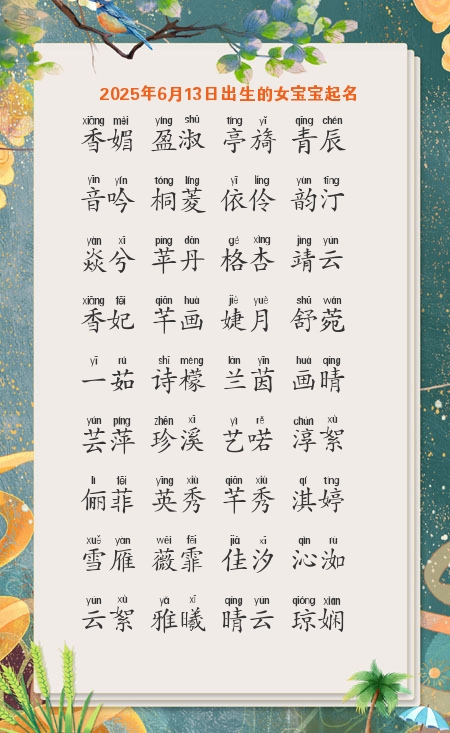 2025年6月13日出生的女宝宝起名
xiāng mèi yíng shū tíng yǐ qīng chén
香媚 盈淑 亭旖 青辰
yīn yín tóng líng yī líng yùn tīng
音吟 桐菱 依伶 韵汀
yàn xī píng dān gé xìng jìng yún
焱兮 苹丹 格杏 靖云
xiāng fēi qiān huà jié yuè shū wǎn
香妃 芊画 婕月 舒菀
yī rú shī méng lán yīn huà qíng
一茹 诗檬 兰茵 画晴
yún píng zhēn xī yì rě chún xù
芸萍 珍溪 艺喏 淳絮
lì fēi yīng xiù qiān xiù qí tíng
俪菲 英秀 芊秀 淇婷
xuě yàn wēi fēi jiā xī qìn rù
雪雁 薇霏 佳汐 沁洳
yún xù yǎ xī qíng yún qióng xián
云絮 雅曦 晴云 琼娴